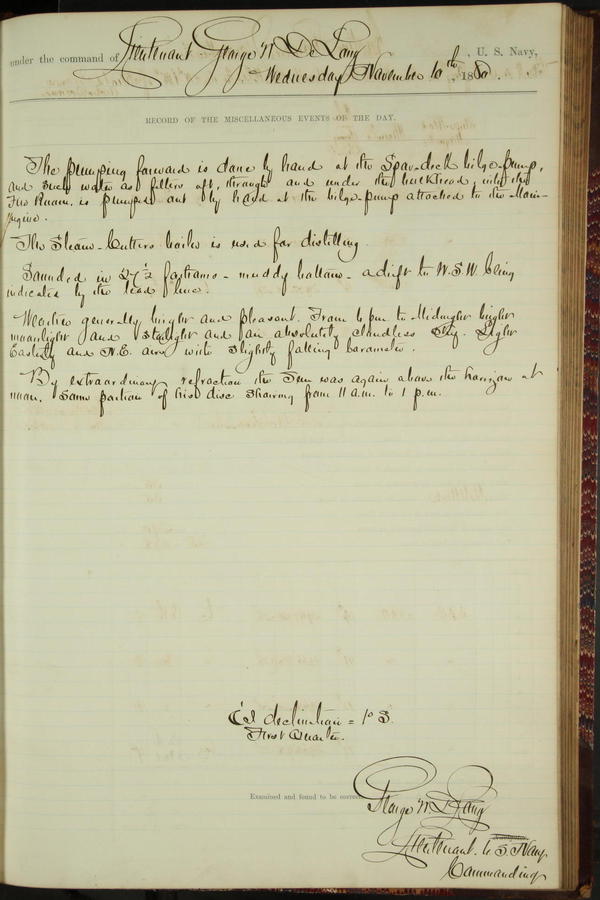 under the command of Lieutenant George W De Long, U. S. Navy,
Wednesday November 10th, 1880.
RECORD OF THE MISCELLANEOUS EVENTS OF THE DAY.
The pumping forward is done by hand at the Spar-deck bilge-pump,
and such water as filters aft, through and under the bulkhead, into the
Fire Room, is pumped out by hand at the bilge-pump attached to the Main-
Engine.
The Steam-Cutters boiler is used for distilling.
Sounded in 27½ fathoms - muddy bottom - a drift to W.S.W. being
indicated by the lead line.
Weather generally bright and pleasant. From 6 pm to Midnight bright
moonlight and starlight and an absolutely cloudless sky. Light
Easterly and N.E. airs with slightly falling barometer.
By extraordinary refraction the Sun was again above the horizon at
noon, some portion of his disc showing from 11 a.m. to 1 p.m.
declination = 1° S.
First Quarter.
Examined and found to be correct.
George W De Long
Lieutenant U S Navy.
Commanding